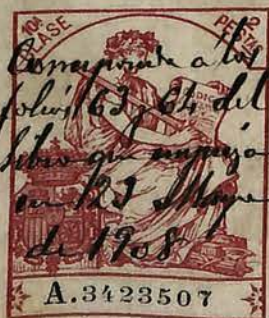 10ª CLASE
2 PESETAS
Corresponde a los
folios 63 y 64 del
libro que empieza
en 12 Mayo
de 1908
A.3423507